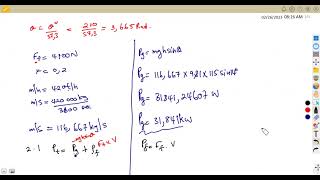 02/26/2023 08:26 AM
θ = θ° / 57,3 = 210 / 57,3 = 3,665 Rad.
F_f = 4100N
r = 0,2
m/h = 420t/h
m/s = 420 000 kg / 3600
m/s = 116,667 kg/s
2.1 P_t = P_g + P_f
F_f × V
P_g = mgh sinθ
P_g = 116,667 × 9,81 × 115 sin
P_g = 31841,24607 W
P_g = 31,841 kW
P_f = F_f . V